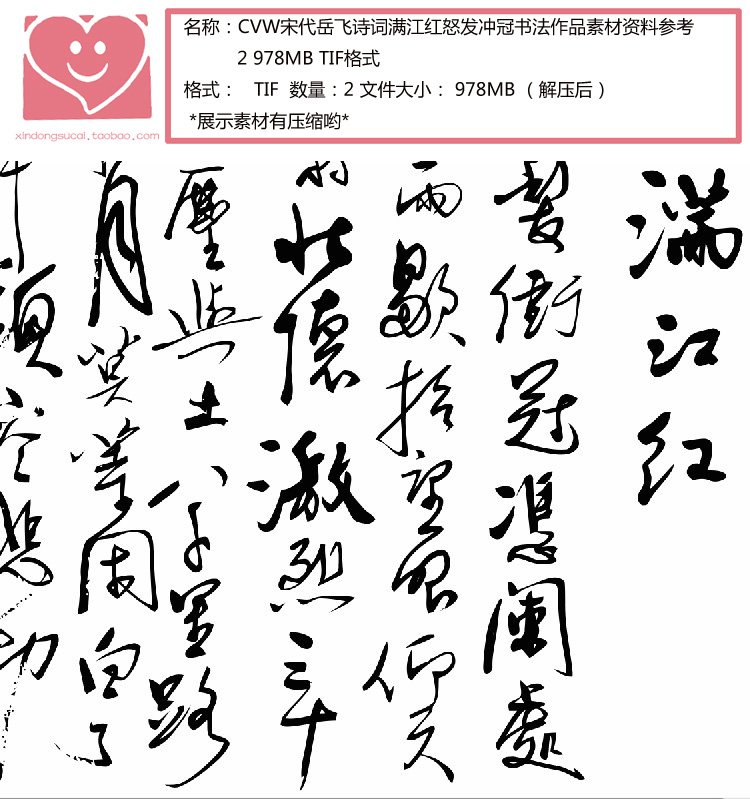 名称：CVW宋代岳飞诗词满江红怒发冲冠书法作品素材资料参考
2 978MB TIF格式
格式： TIF 数量：2 文件大小： 978MB （解压后）
*展示素材有压缩哟*
xindongsucai.taobao.com
满江红
髮衝冠憑闌處
雨歇抬望眼仰天
壯懷激烈三十
塵與土八千里路
月莫等閑白了
頭空悲切